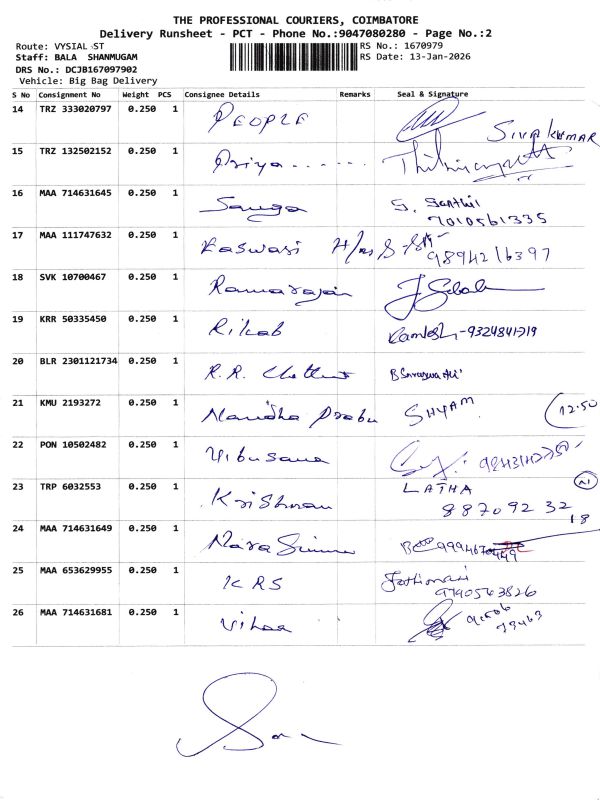 THE PROFESSIONAL COURIERS, COIMBATORE
Delivery Runsheet - PCT - Phone No.:9047080280 - Page No.:2
Route: VYSIAL ST
Staff: BALA SHANMUGAM
DRS No.: DCJB167097902
Vehicle: Big Bag Delivery
RS No.: 1670979
RS Date: 13-Jan-2026
S No Consignment No Weight PCS Consignee Details Remarks Seal & Signature
14 TRZ 333020797 0.250 1 PEOPLE SIVA KUMAR
15 TRZ 132502152 0.250 1 Priya......
16 MAA 714631645 0.250 1 Sauga S. Santhil
7010561335
17 MAA 111747632 0.250 1 Kaswasi
9894216397
18 SVK 10700467 0.250 1 Ramarajan
19 KRR 50335450 0.250 1 Rikab Kamlesh -9324841719
20 BLR 2301121734 0.250 1 R.R.
21 KMU 2193272 0.250 1 Nandha Prabu SHYAM. 12.50
22 PON 10502482 0.250 1 Vibusana
23 TRP 6032553 0.250 1 Krishnan LATHA
887092 32
18
24 MAA 714631649 0.250 1
25 MAA 653629955 0.250 1 KRS Jothimani
9790543826
26 MAA 714631681 0.250 1 Vihaa